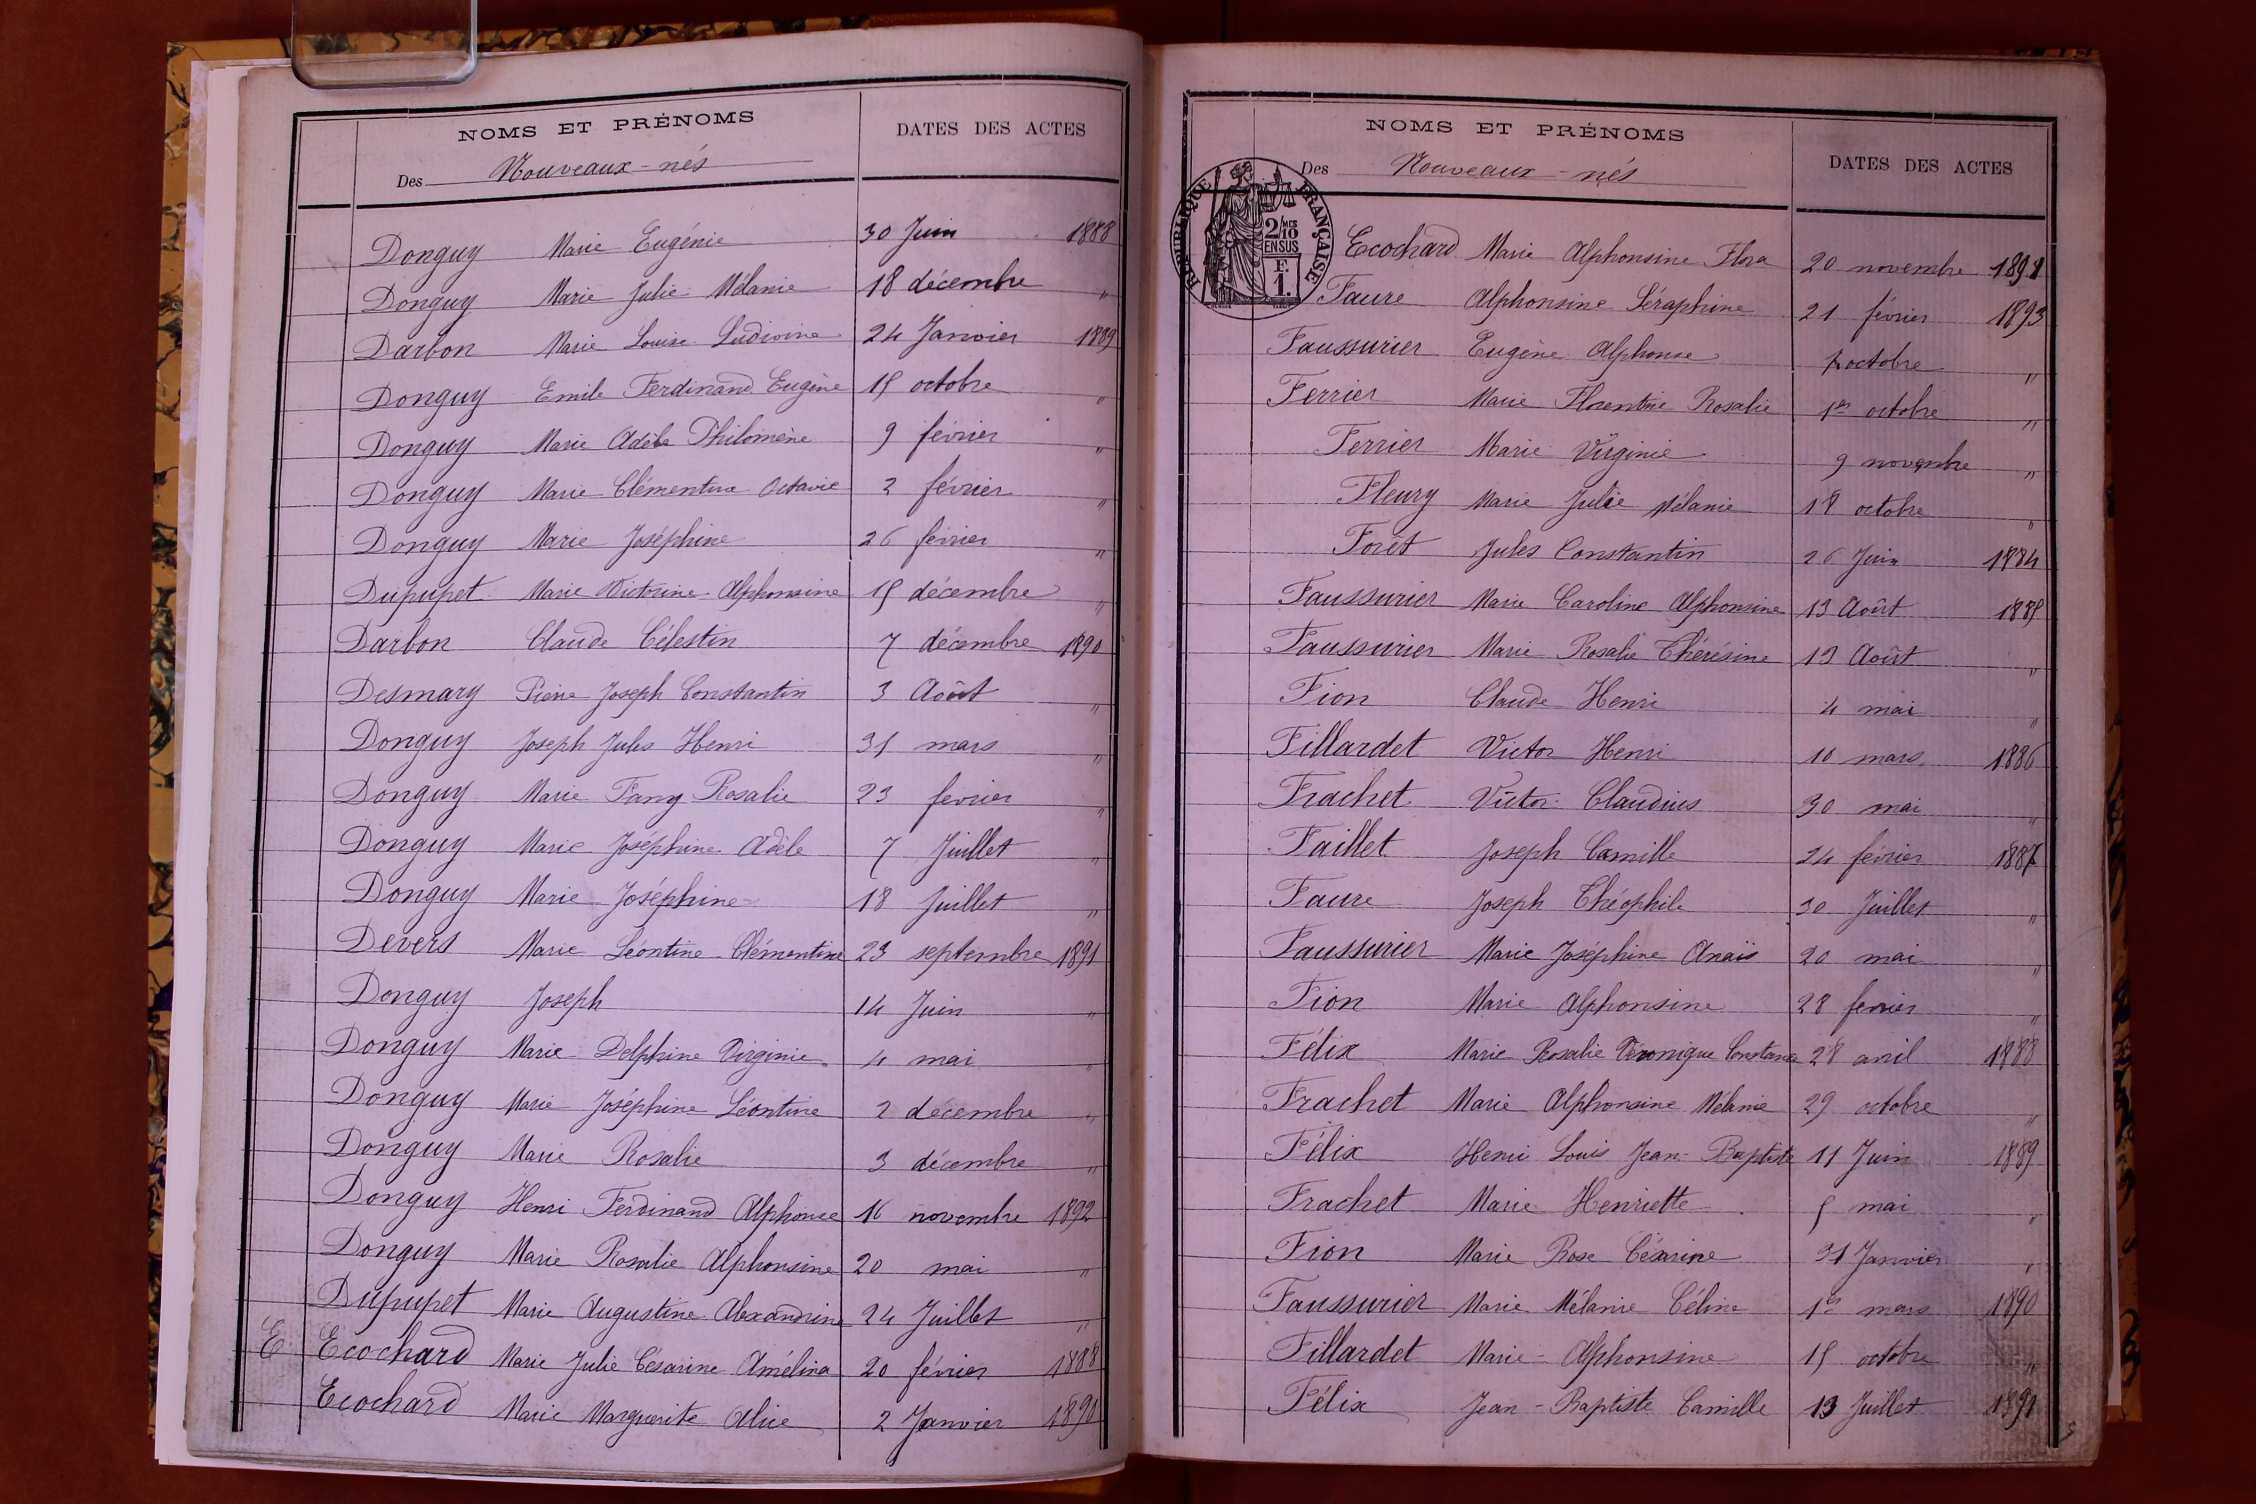 NOMS ET PRÉNOMS
DATES DES ACTES
Des Nouveaux-nés
Donguy Marie Eugénie 30 Juin 1888
Donguy Marie Julie Mélanie 18 décembre "
Darbon Marie Louise Ludivine 24 Janvier 1889
Donguy Emile Ferdinand Eugène 15 octobre "
Donguy Marie Adèle Philomène 9 février "
Donguy Marie Clémentine Octavie 2 février "
Donguy Marie Joséphine 26 février "
Dupupet Marie Victorine Alphonsine 15 décembre "
Darbon Claude Célestin 7 décembre 1890
Desmary Pierre Joseph Constantin 3 Août "
Donguy Joseph Jules Henri 31 mars "
Donguy Marie Fany Rosalie 23 février "
Donguy Marie Joséphine Adèle 7 Juillet "
Donguy Marie Joséphine 18 Juillet "
Devers Marie Léontine Clémentine 23 septembre 1891
Donguy Joseph 14 Juin "
Donguy Marie Delphine Virginie 4 mai "
Donguy Marie Joséphine Léontine 2 décembre "
Donguy Marie Rosalie 3 décembre "
Donguy Henri Ferdinand Alphonse 16 novembre 1892
Donguy Marie Rosalie Alphonsine 20 mai "
Dupupet Marie Augustine Alexandrine 24 Juillet "
E Ecochard Marie Julie Césarine Amélina 20 février 1888
Ecochard Marie Marguerite Alice 2 Janvier 1890
NOMS ET PRÉNOMS
DATES DES ACTES
Des Nouveaux-nés
RÉPUBLIQUE FRANÇAISE
2/10 MES
EN SUS
F.
1.
Ecochard Marie Alphonsine Flora 20 novembre 1891
Faure Alphonsine Séraphine 21 février 1893
Faussurier Eugène Alphonse octobre "
Ferrier Marie Florentine Rosalie 1er octobre "
Ferrier Marie Virginie 9 novembre "
Fleury Marie Julie Mélanie 18 octobre "
Forêt Jules Constantin 26 Juin 1884
Faussurier Marie Caroline Alphonsine 13 Août 1885
Faussurier Marie Rosalie Thérésine 13 Août "
Fion Claude Henri 4 mai "
Fillardet Victor Henri 10 mars 1886
Frachet Victor Claudius 30 mai "
Faillet Joseph Camille 24 février 1887
Faure Joseph Théophile 30 Juillet "
Faussurier Marie Joséphine Anaïs 20 mai "
Fion Marie Alphonsine 28 fevrier "
Félix Marie Rosalie Véronique Constance 28 avril 1888
Frachet Marie Alphonsine Mélanie 29 octobre "
Félix Henri Louis Jean-Baptiste 11 Juin 1889
Frachet Marie Henriette 5 mai "
Fion Marie Rose Césarine 31 Janvier "
Faussurier Marie Mélanie Céline 1er mars 1890
Fillardet Marie-Alphonsine 15 octobre "
Félix Jean-Baptiste Camille 13 Juillet 1891